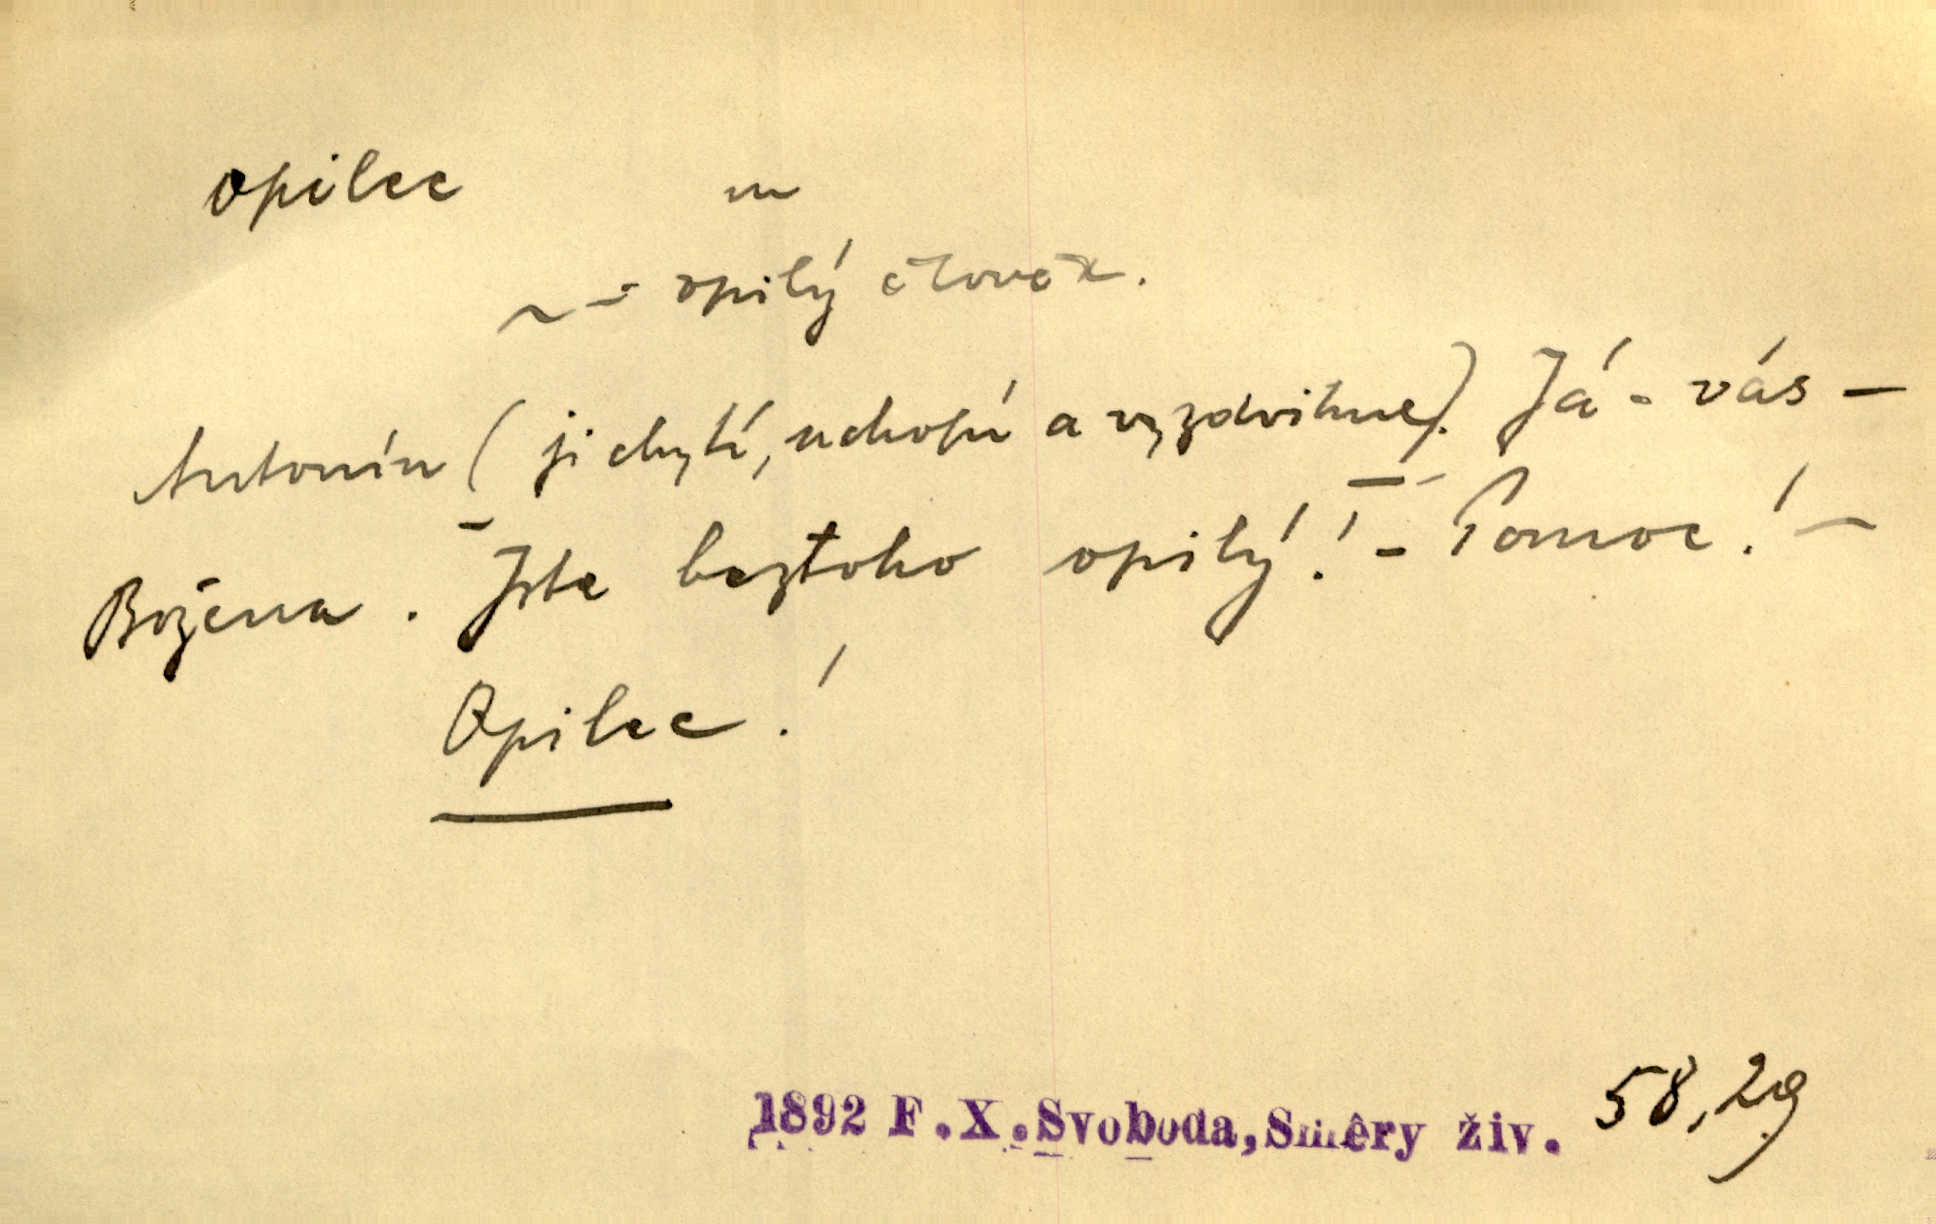 opilec m
~ = opilý člověk.
Antonín (ji chytí, uchopí a vyzdvihne). Já - vás —
Božena. Jste beztoho opilý! - Pomoc! —
Opilec!
1892 F.X.Svoboda, Směry živ. 58,29